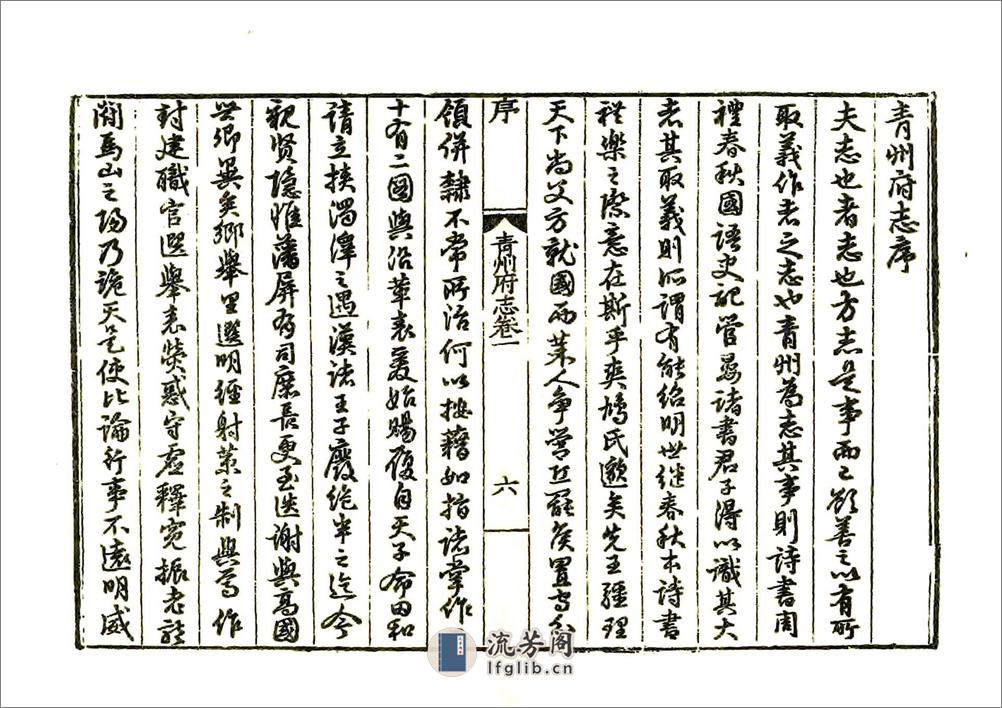 青州府志序
夫志也者志也方志是事而已顧善之以有所
取義作者之志也青州為志其事則詩書周
禮春秋國語史記管晏諸書君子得以識其大
者其取義則所謂有能紹明世繼春秋本詩書
禮樂之際意在斯乎爽鳩氏邈矣先王疆理
天下尚父方就國而萊人爭營丘罷侯置守分
序
青州府志卷一
六
領併隸不常所治何以按藉如指諸掌作
十有二國與沿革表爰始賜履自天子命田和
請立挾濁澤之遇漢諸王子廢絶半之迄今
親賢隱惟藩屏有司庶長更互迭謝與高國
世卿異矣鄉舉里選明經射策之制興焉作
封建職官選舉表熒惑守虛釋冤振老
閻馬山之陽乃詭天乞使比論行事不遠明威
流芳阁
lfglib.cn